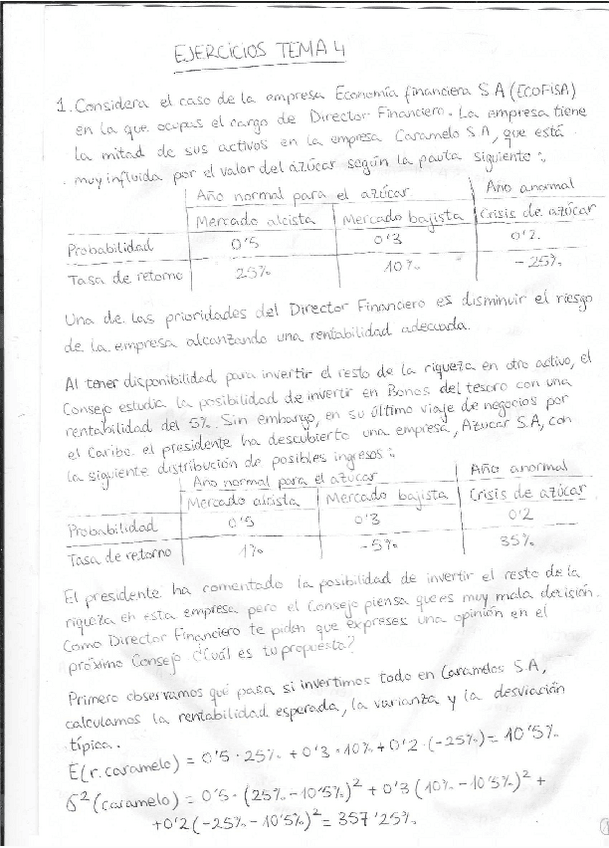 EJERCICIOS TEMA 4
1. Considera el caso de la empresa Economía financiera S A (ECOFISA)
en la que ocupas el cargo de Director Financiero. La empresa tiene
la mitad de sus activos en la empresa Caramelo S.A, que está
muy influida por el valor del azúcar según la pauta siguiente:
Año normal para el azúcar Año anormal
Mercado alcista Mercado bajista Crisis de azúcar
Probabilidad 0'5 0'3 0'2
Tasa de retorno 25% 10% -25%
Una de las prioridades del Director Financiero es disminuir el riesgo
de la empresa alcanzando una rentabilidad adecuada.
Al tener disponibilidad para invertir el resto de la riqueza en otro activo, el
Consejo estudia la posibilidad de invertir en Bonos del tesoro con una
rentabilidad del 5%. Sin embargo, en su último viaje de negocios por
el Caribe el presidente ha descubierto una empresa, Azucar S.A, con
la siguiente distribución de posibles ingresos:
Año normal para el azucar Año anormal
Mercado alcista Mercado bajista Crisis de azúcar
Probabilidad 0'5 0'3 0'2
Tasa de retorno 1% -5% 35%
El presidente ha comentado la posibilidad de invertir el resto de la
riqueza en esta empresa pero el Consejo piensa que es muy mala decisión.
Como Director Financiero te piden que expreses una opinión en el
próximo Consejo ¿Cuál es tu propuesta?
Primero observamos qué pasa si invertimos todo en Caramelos S.A,
calculamos la rentabilidad esperada, la varianza y la desviación
típica.
E(r. caramelo) = 0'5 · 25% + 0'3 · 10% + 0'2 · (-25%) = 10'5%
σ²(caramelo) = 0'5 · (25% - 10'5%)² + 0'3 (10% - 10'5%)² +
+0'2 (-25% - 10'5%)² = 357'25%